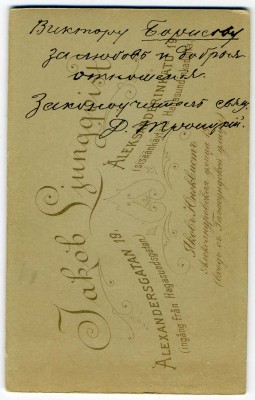 Виктору Борисову
за любовь и добрыя
отношения
Законоучитель свящ.
Ѳ. Троицкій.
Jakob Ljungqvist
ALEXANDERSGATAN 19.
(ingång från Hagasundsgatan)
ALEKSANDERINKATU 19.
Яковъ Юнквистъ
Александровская улица